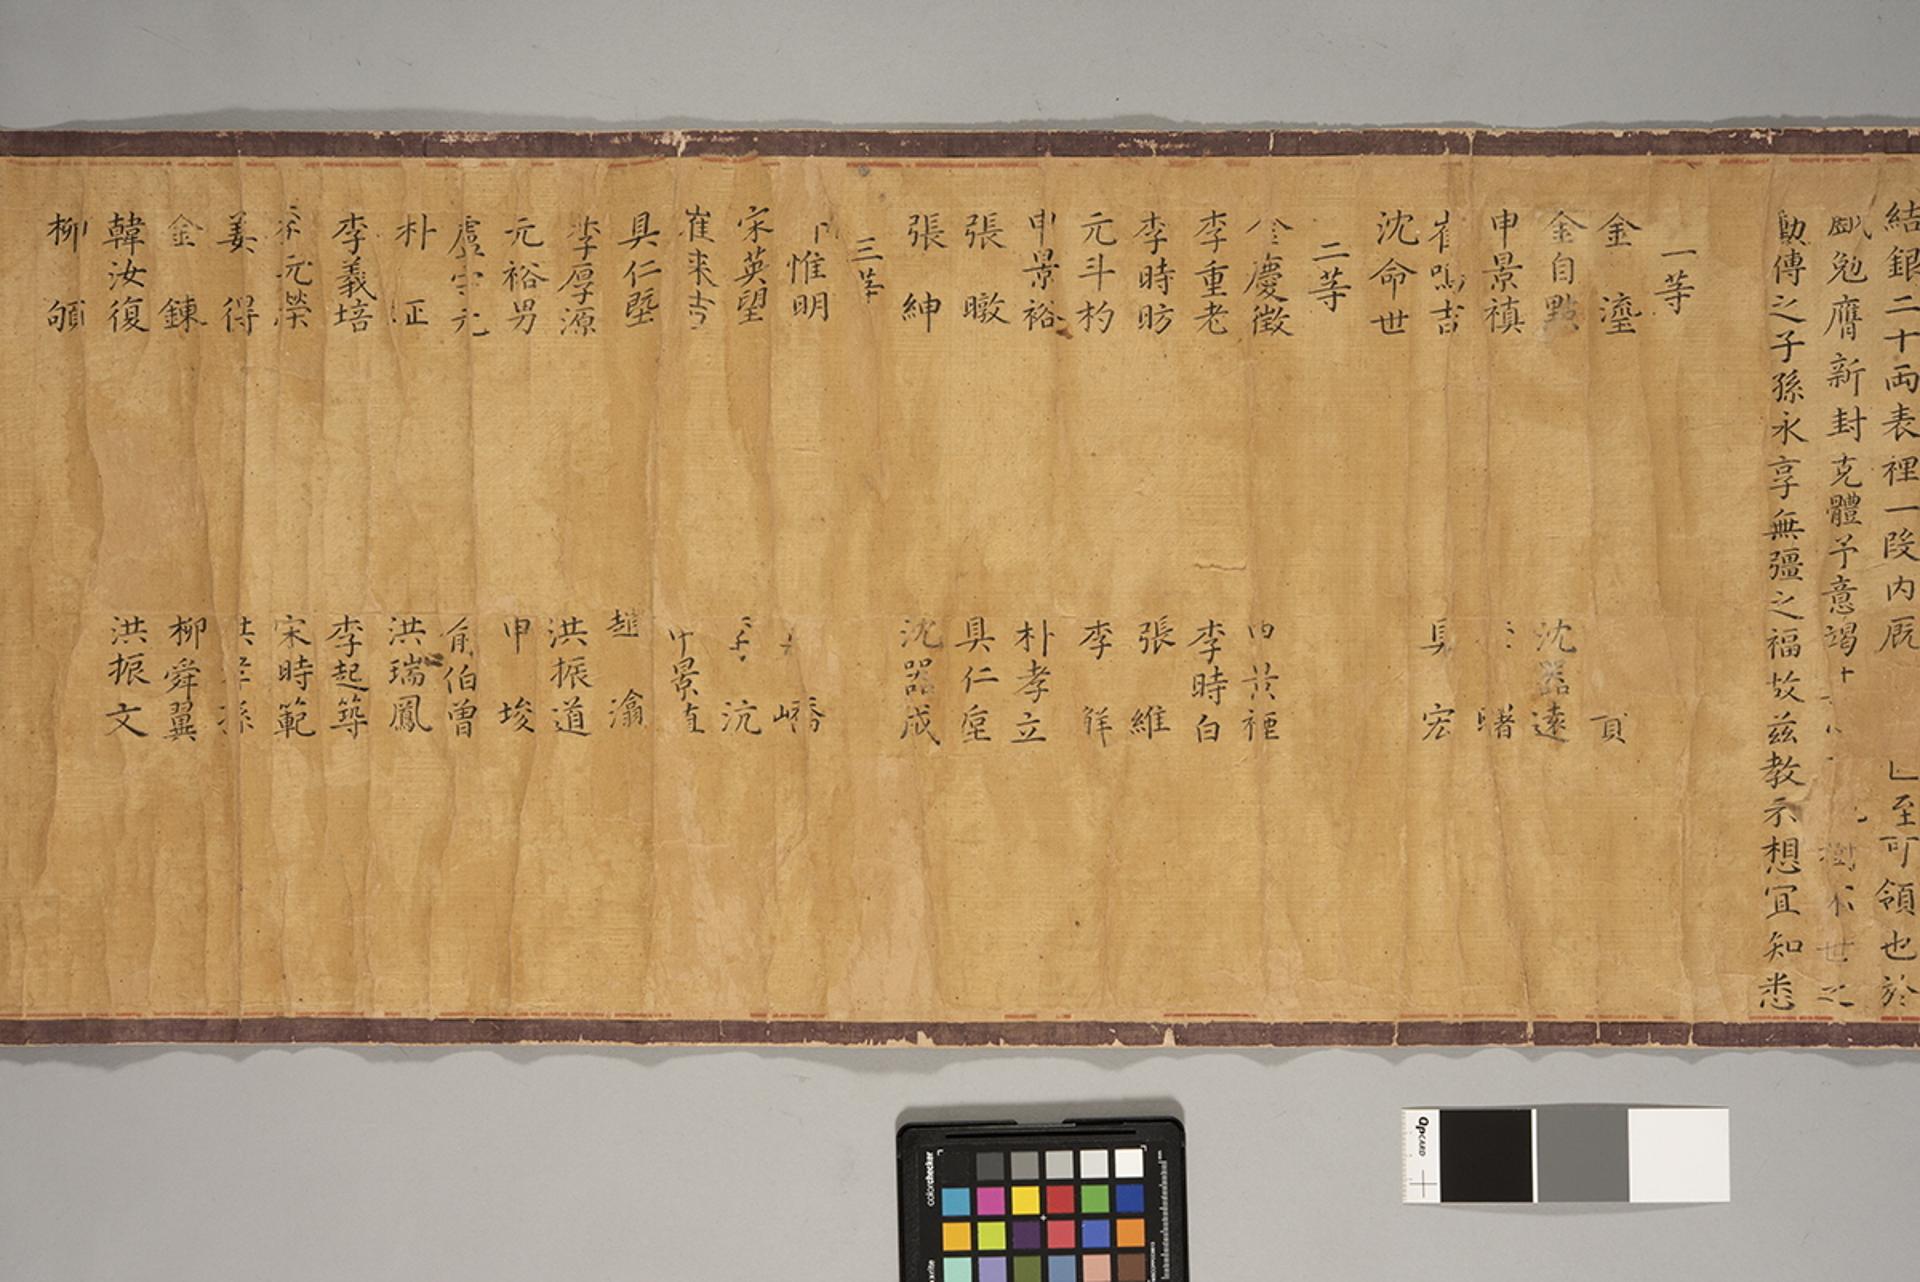 結銀二十両表裡一段內厩 至可領也於
勉膺新封克體予意竭 樹 不 世之
勳傳之子孫永享無疆之福故兹教示想宜知悉
一等
金瀊
金自點 沈器遠
申景禛 曙
崔鳴吉 具宏
沈命世
二等
金慶徵 黃裡
李重老 李時白
李時昉 張維
元斗杓 李
申景裕 朴孝立
張暾 具仁垕
張紳 沈器成
三等
惟明
宋英望 沆
崔来吉 申景植
具仁墍 趙潝
李厚源 洪振道
元裕男 申埈
盧 元 俞伯曾
朴 洪瑞鳳
李義培 李起築
元榮 宋時範
姜得 洪 孫
金鍊 柳舜翼
韓汝復 洪振文
柳頔
QPcard
colorchecker